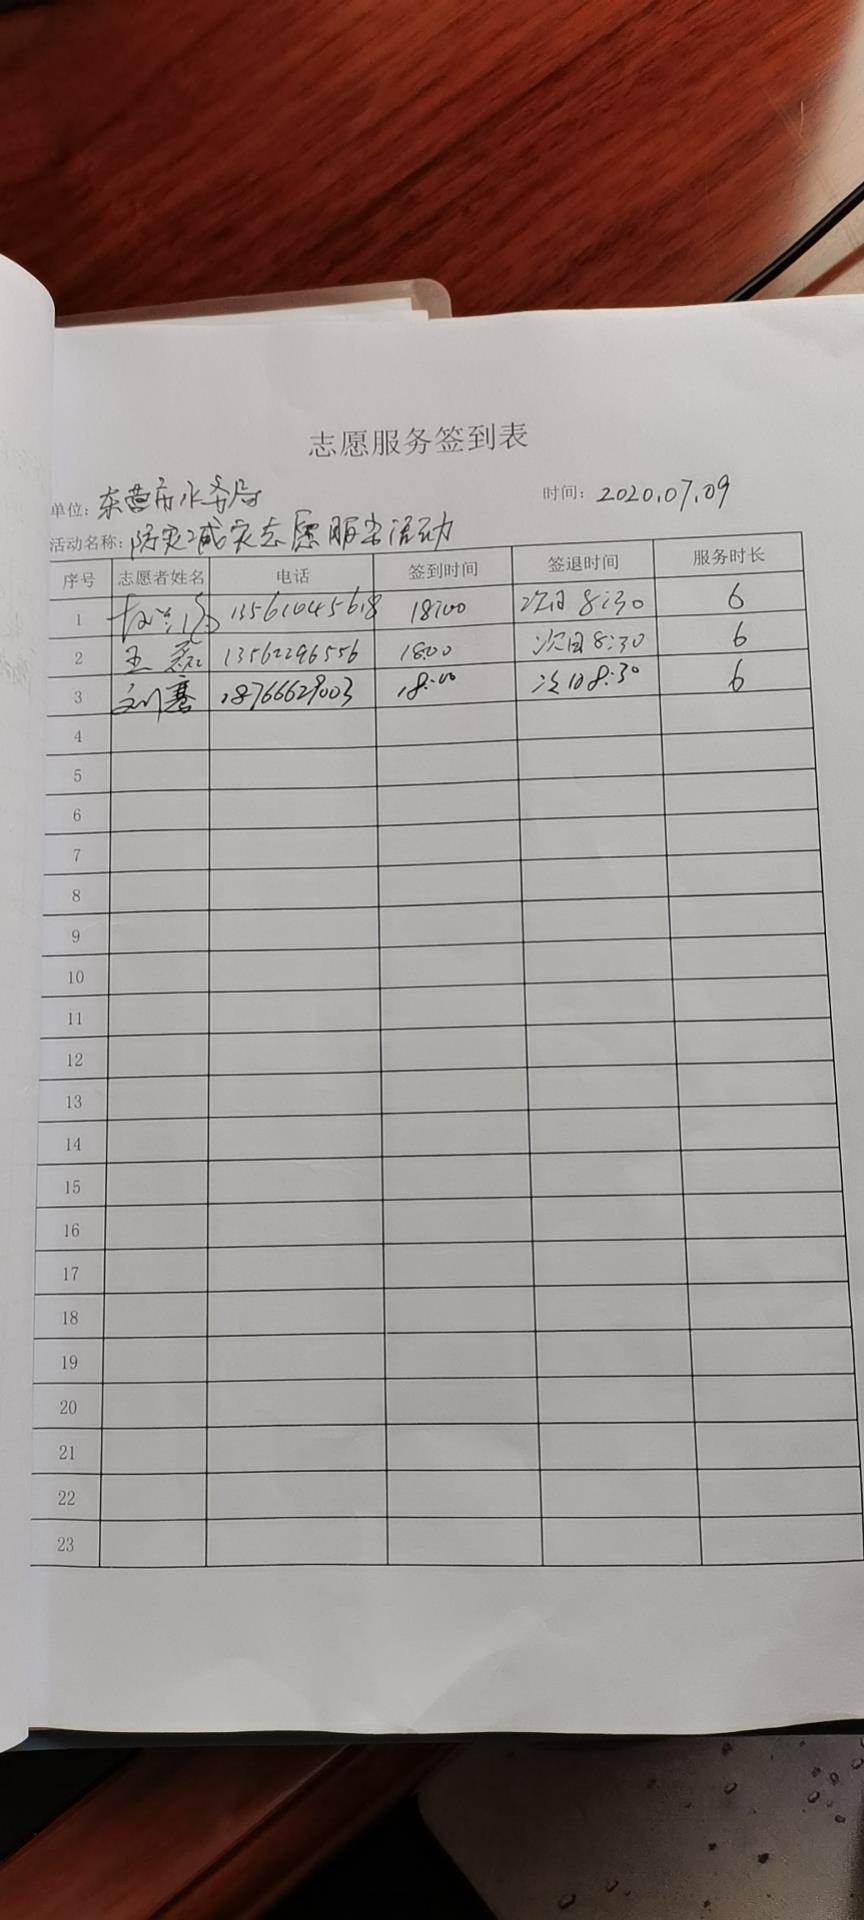 志愿服务签到表
单位: 东营市水务局 时间: 2020.07.09
活动名称: 防灾减灾志愿服务活动
序号 志愿者姓名 电话 签到时间 签退时间 服务时长
1 13561045618 18:00 次日 8:30 6
2 王磊 13562296556 18:00 次日 8:30 6
3 刘骞 18766629003 18:00 次日 8:30 6
4
5
6
7
8
9
10
11
12
13
14
15
16
17
18
19
20
21
22
23